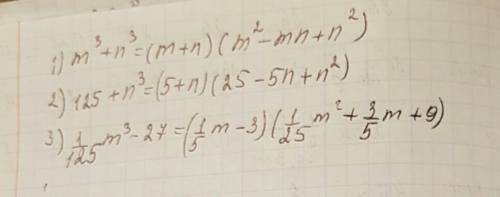 1) m³+n³=(m+n)(m²-mn+n²)
2) 125+n³=(5+n)(25-5n+n²)
3) 1/125 m³-27=(1/5 m-3)(1/25 m²+3/5 m+9)